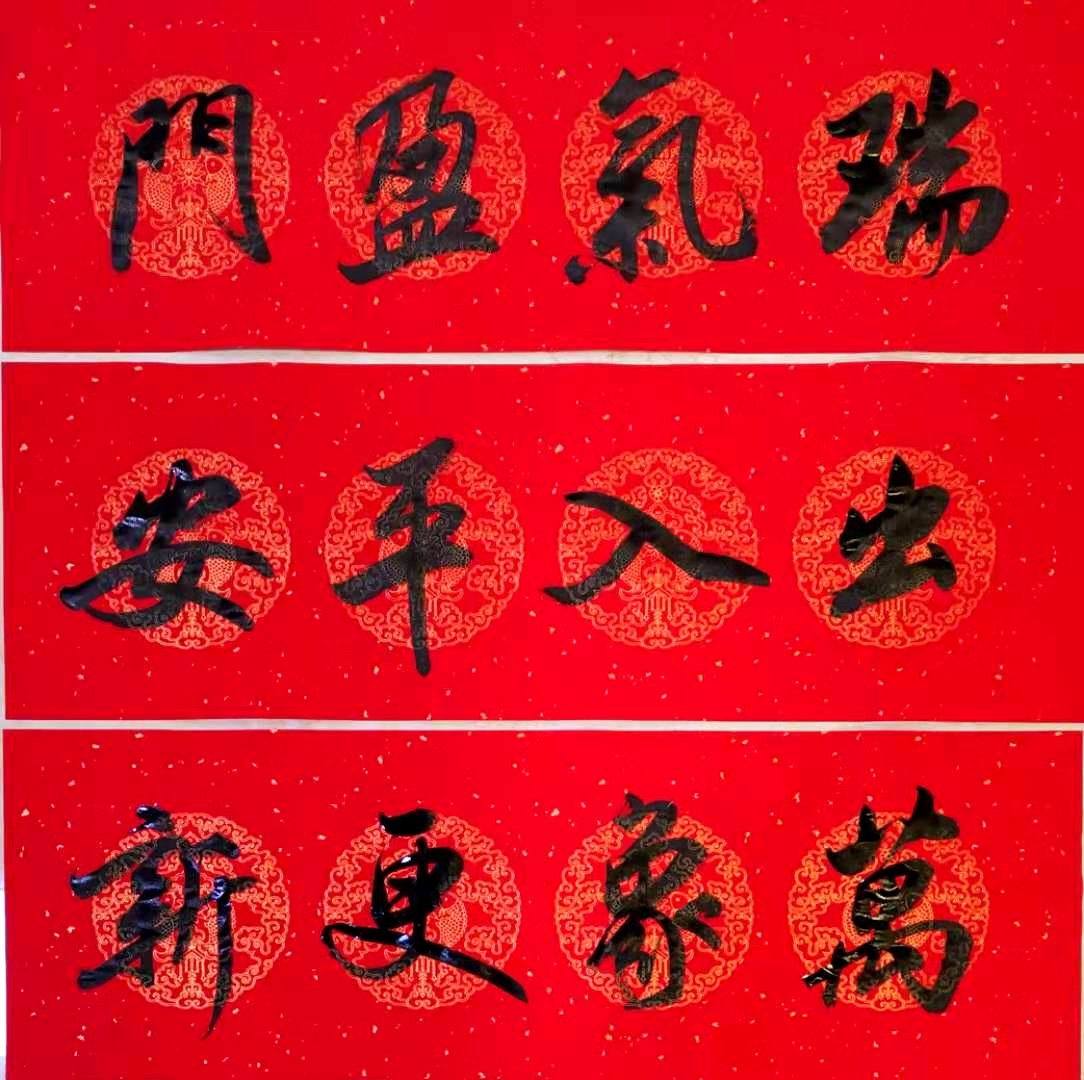 瑞氣盈門
出入平安
萬象更新